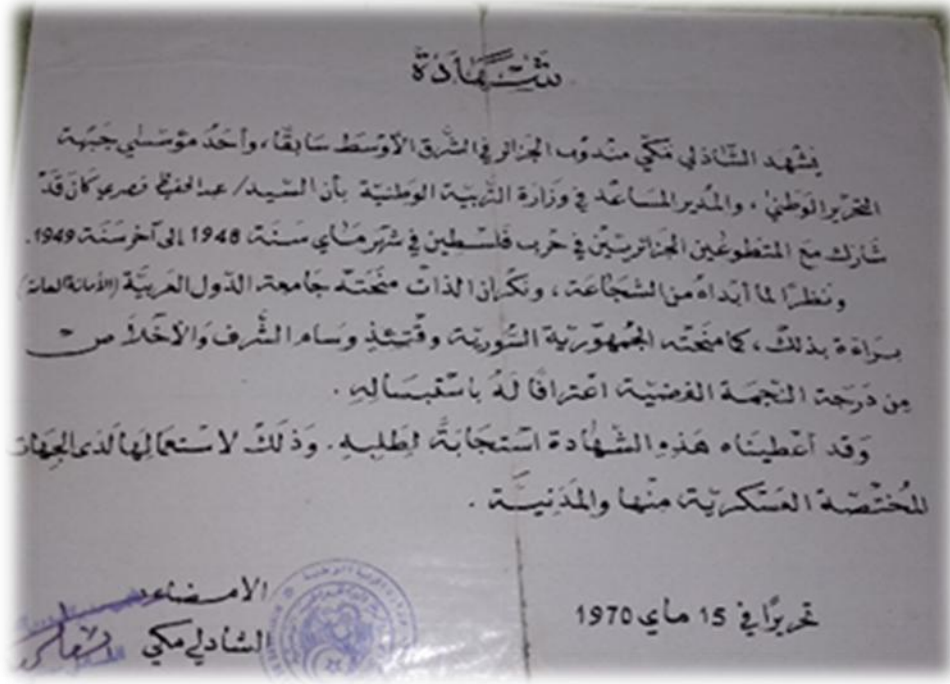 شهادة
يشهد الشاذلي مكي مندوب الجزائر في الشرق الأوسط سابقا، وأحد مؤسسي جبهة
التحرير الوطني، والمدير المساعد في وزارة التربية الوطنية بأن السيد/ عبد الحفيظ نصري كان قد
شارك مع المتطوعين الجزائريين في حرب فلسطين في شهر ماي سنة 1948 إلى آخر سنة 1949.
ونظرا لما أبداه من الشجاعة، ونكران الذات منحته جامعة الدول العربية (الأمانة العامة)
براءة بذلك، كما منحته الجمهورية السورية وقتئذ وسام الشرف والأخلاص
من درجة النجمة الفضية اعترافا له باستبساله.
وقد أعطيناه هذه الشهادة استجابة لطلبه. وذلك لاستعمالها لدى الجهات
المختصة العسكرية منها والمدنية.
تحريرا في 15 ماي 1970
الامضاء
الشاذلي مكي